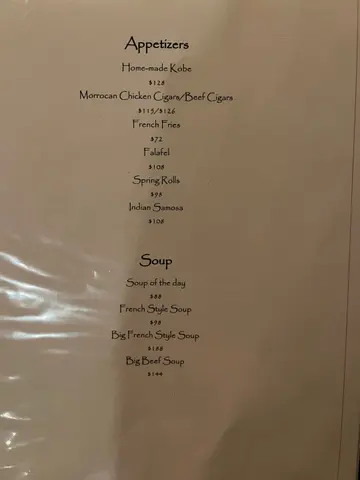 Appetizers
Home-made Kobe
$128
Morrocan Chicken Cigars/Beef Cigars
$115/$126
French Fries
$72
Falafel
$108
Spring Rolls
$98
Indian Samosa
$108
Soup
Soup of the day
$88
French Style Soup
$98
Big French Style Soup
$188
Big Beef Soup
$144